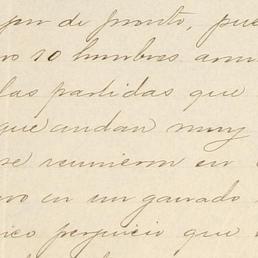 de pronto, pue
10 hombres arm
las partidas que
que andan muy
re reunieron en
vo en un ganado
ico perjuicio que